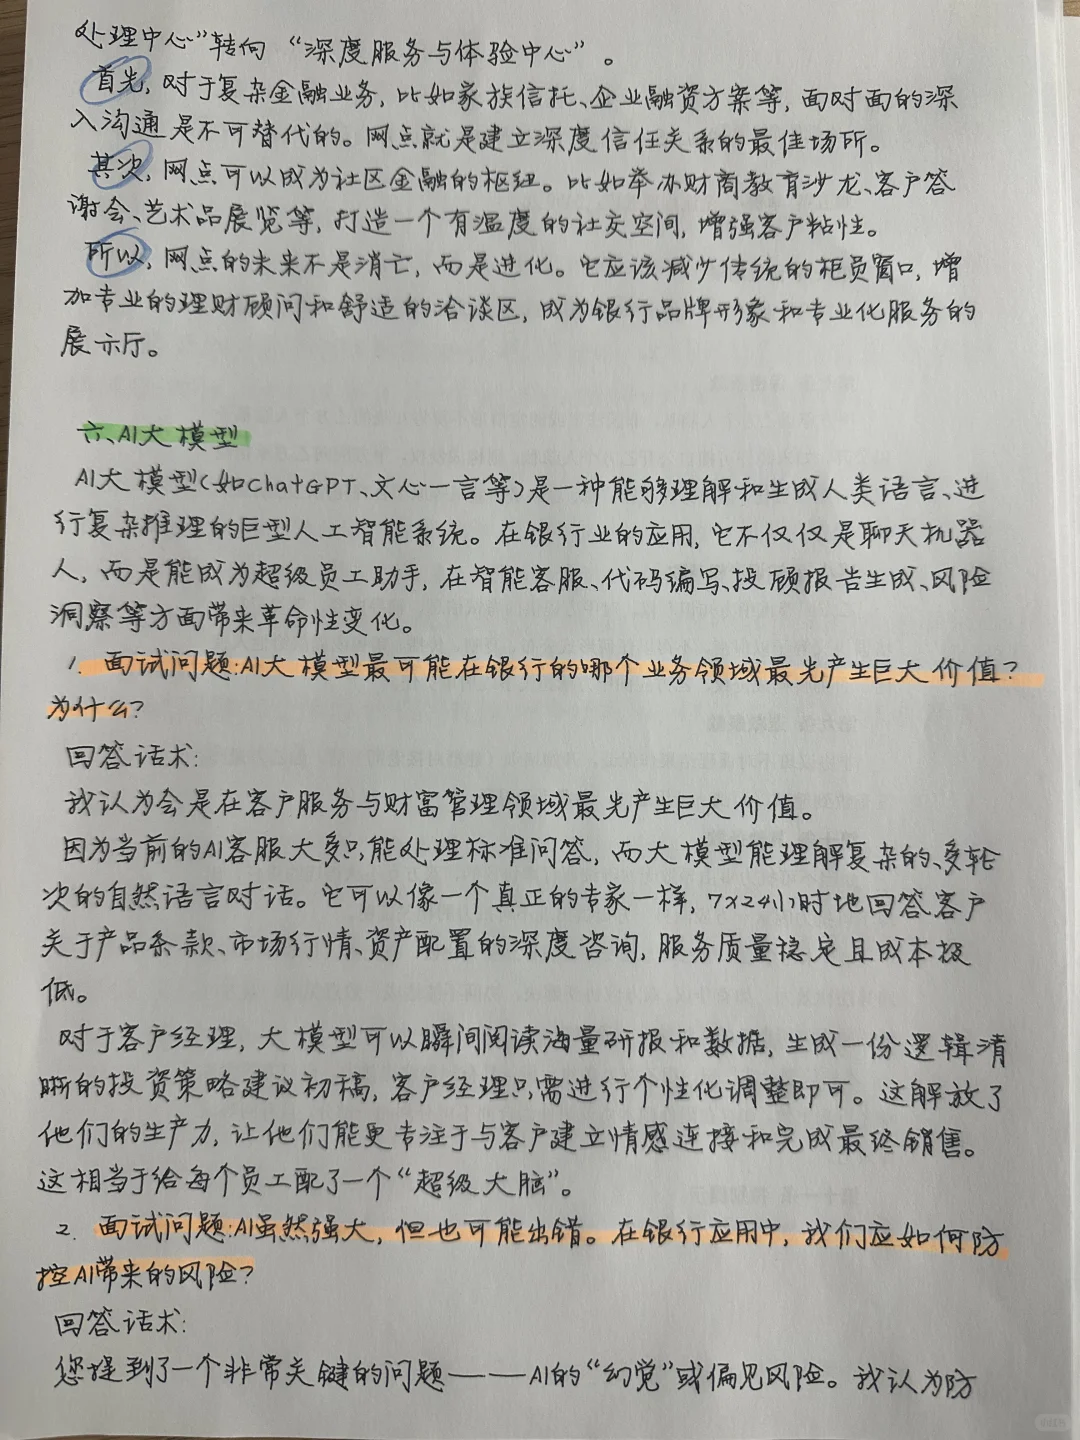 处理中心”转向“深度服务与体验中心”。
首先,对于复杂金融业务,比如家族信托、企业融资方案等,面对面的深
入沟通是不可替代的。网点就是建立深度信任关系的最佳场所。
其次,网点可以成为社区金融的枢纽。比如举办财商教育沙龙、客户答
谢会、艺术品展览等,打造一个有温度的社交空间,增强客户粘性。
所以,网点的未来不是消亡,而是进化。它应该减少传统的柜员窗口,增
加专业的理财顾问和舒适的洽谈区,成为银行品牌形象和专业化服务的
展示厅。
六、AI大模型
AI大模型(如ChatGPT、文心一言等)是一种能够理解和生成人类语言、进
行复杂推理的巨型人工智能系统。在银行业的应用,它不仅仅是聊天机器
人,而是能成为超级员工助手,在智能客服、代码编写、投顾报告生成、风险
洞察等方面带来革命性变化。
1. 面试问题:AI大模型最可能在银行的哪个业务领域最先产生巨大价值?
为什么?
回答话术:
我认为会是在客户服务与财富管理领域最先产生巨大价值。
因为当前的AI客服大多只能处理标准问答,而大模型能理解复杂的、多轮
次的自然语言对话。它可以像一个真正的专家一样,7x24小时地回答客户
关于产品条款、市场行情、资产配置的深度咨询,服务质量稳定且成本极
低。
对于客户经理,大模型可以瞬间阅读海量研报和数据,生成一份逻辑清
晰的投资策略建议初稿,客户经理只需进行个性化调整即可。这解放了
他们的生产力,让他们能更专注于与客户建立情感连接和完成最终销售。
这相当于给每个员工配了一个“超级大脑”。
2. 面试问题:AI虽然强大,但也可能出错。在银行应用中,我们应如何防
控AI带来的风险?
回答话术:
您提到了一个非常关键的问题——AI的“幻觉”或偏见风险。我认为防